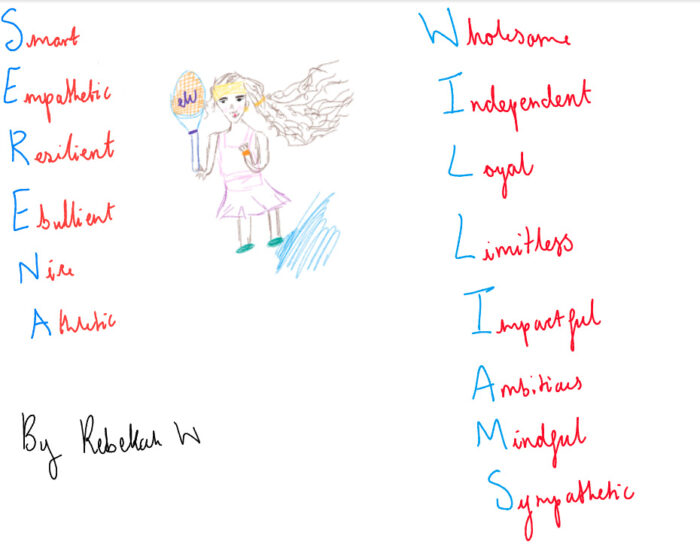 Smart
Empathetic
Resilient
Ebullient
Nice
Athletic
By Rebekah W
Wholesome
Independent
Loyal
Limitless
Impactful
Ambitious
Mindful
Sympathetic